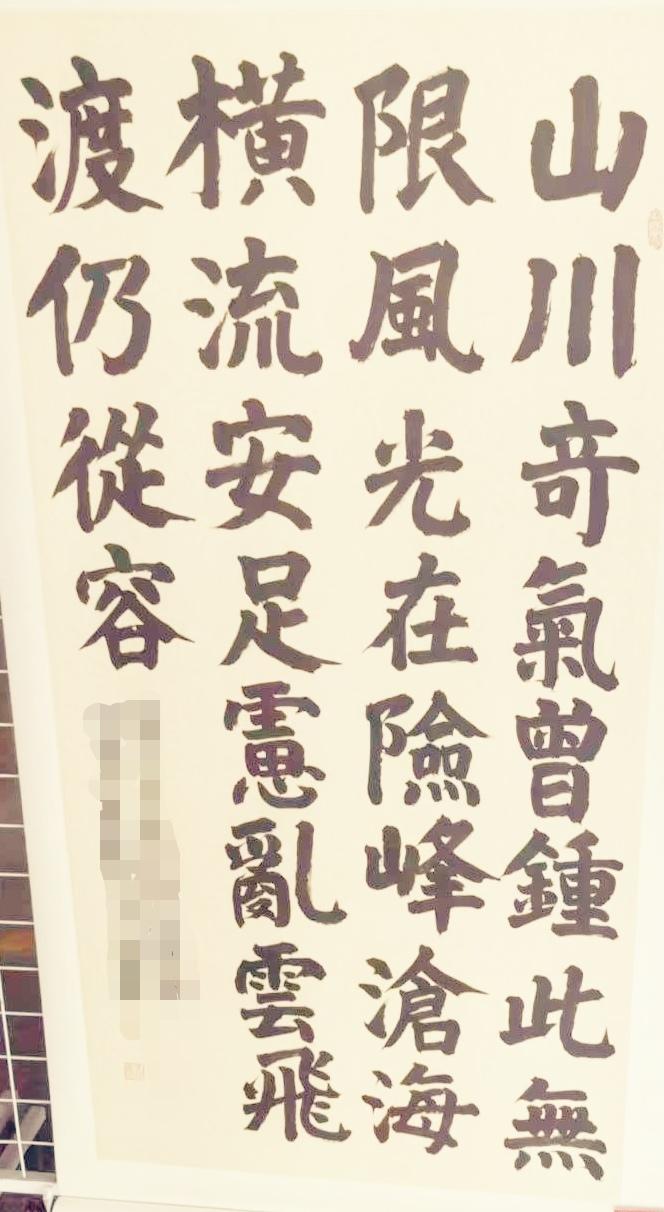 山川竒氣曾鍾此無
限風光在險峰滄海
橫流安足慮亂雲飛
渡仍從容